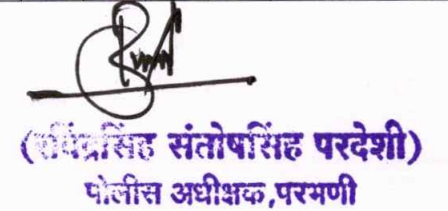 (रविंद्रसिंह संतोषसिंह परदेशी)
पोलीस अधीक्षक,परभणी